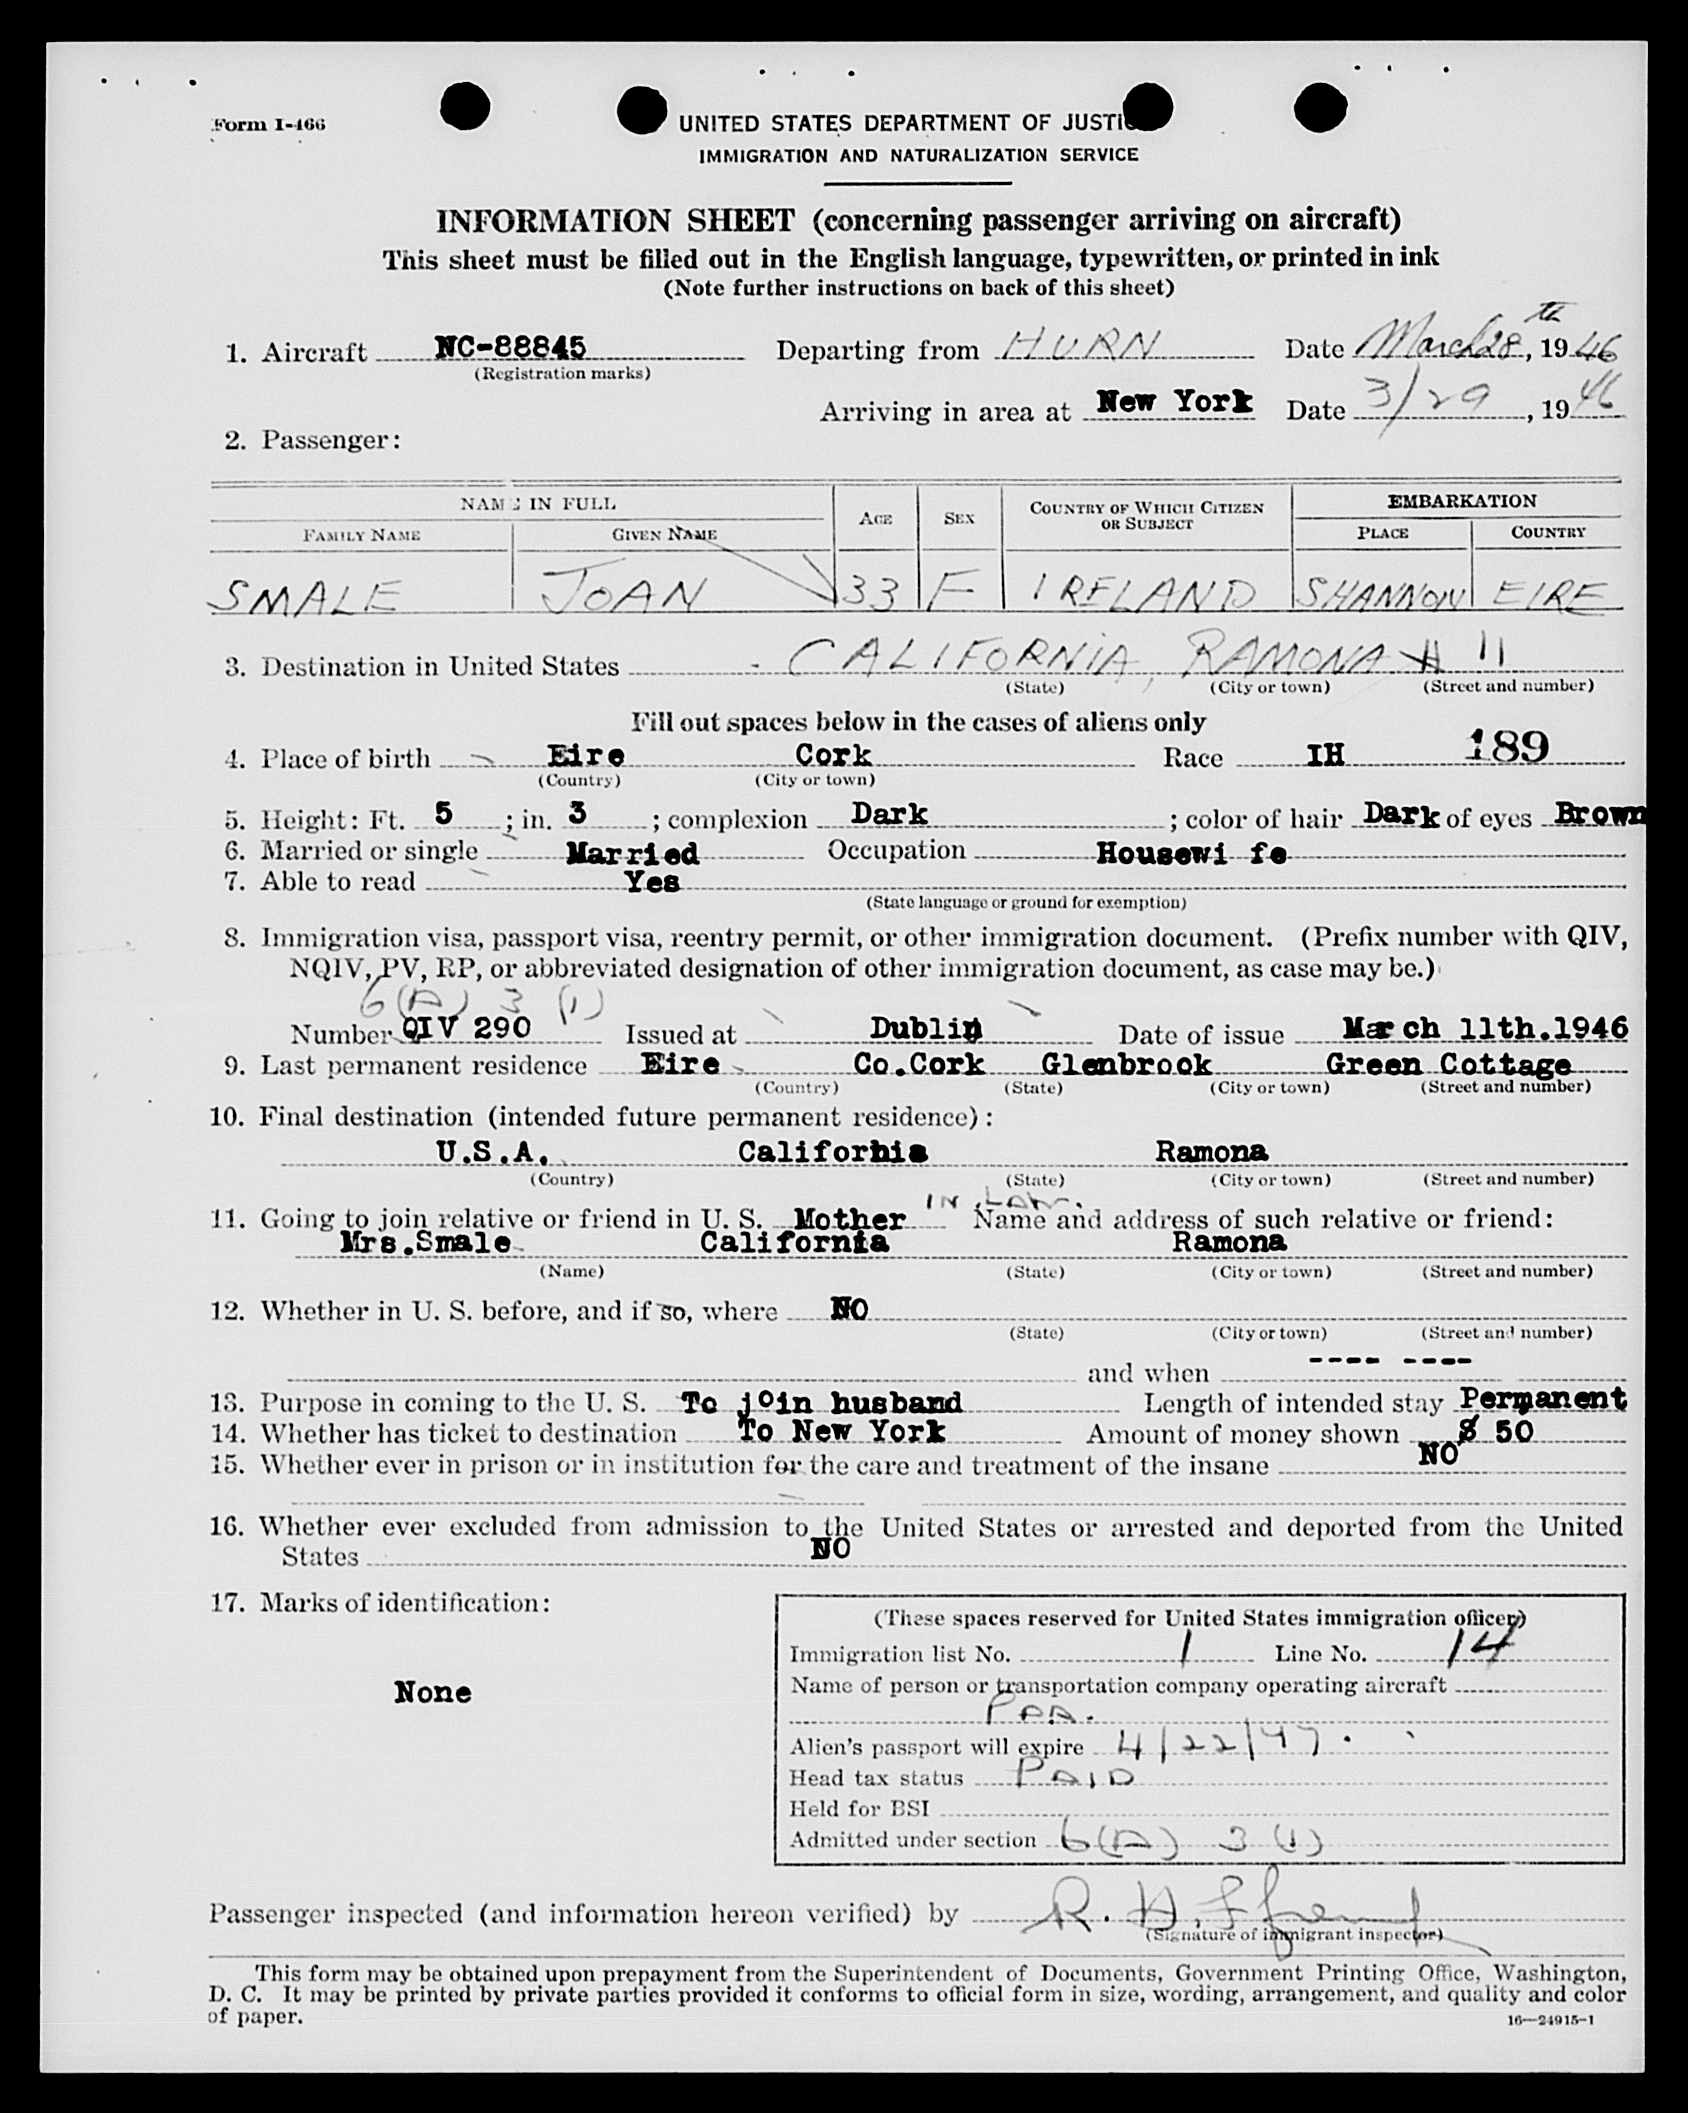 Form I-466
UNITED STATES DEPARTMENT OF JUSTIC
IMMIGRATION AND NATURALIZATION SERVICE
INFORMATION SHEET (concerning passenger arriving on aircraft)
This sheet must be filled out in the English language, typewritten, or printed in ink
(Note further instructions on back of this sheet)
1. Aircraft NC-88845 Departing from HURN Date March 28th, 1946
(Registration marks)
Arriving in area at New York Date 3/29, 1946
2. Passenger:
NAME IN FULL AGE SEX COUNTRY OF WHICH CITIZEN OR SUBJECT EMBARKATION
FAMILY NAME GIVEN NAME PLACE COUNTRY
SMALE JOAN 33 F IRELAND SHANNON EIRE
3. Destination in United States - CALIFORNIA, RAMONA # 11
(State) (City or town) (Street and number)
Fill out spaces below in the cases of aliens only
4. Place of birth Eire Cork Race IH 189
(Country) (City or town)
5. Height: Ft. 5; in. 3; complexion Dark; color of hair Dark of eyes Brown
6. Married or single Married Occupation Housewi fe
7. Able to read Yes
(State language or ground for exemption)
8. Immigration visa, passport visa, reentry permit, or other immigration document. (Prefix number with QIV,
NQIV, PV, RP, or abbreviated designation of other immigration document, as case may be.)
6(A) 3 (1)
Number QIV 290 Issued at Dublin Date of issue March 11th.1946
9. Last permanent residence Eire Co.Cork Glenbrook Green Cottage
(Country) (State) (City or town) (Street and number)
10. Final destination (intended future permanent residence):
U.S.A. California Ramona
(Country) (State) (City or town) (Street and number)
IN LAW.
11. Going to join relative or friend in U. S. Mother Name and address of such relative or friend:
Mrs.Smale California Ramona
(Name) (State) (City or town) (Street and number)
12. Whether in U. S. before, and if so, where NO
(State) (City or town) (Street and number)
and when ---- ----
13. Purpose in coming to the U. S. To join husband Length of intended stay Permanent
14. Whether has ticket to destination To New York Amount of money shown $ 50
15. Whether ever in prison or in institution for the care and treatment of the insane NO
16. Whether ever excluded from admission to the United States or arrested and deported from the United
States NO
17. Marks of identification:
None
(These spaces reserved for United States immigration officer)
Immigration list No. 1 Line No. 14
Name of person or transportation company operating aircraft
PAA.
Alien's passport will expire 4/22/47.
Head tax status PAID
Held for BSI
Admitted under section 6(A) 3 (1)
Passenger inspected (and information hereon verified) by R. H.
(Signature of immigrant inspector)
This form may be obtained upon prepayment from the Superintendent of Documents, Government Printing Office, Washington,
D. C. It may be printed by private parties provided it conforms to official form in size, wording, arrangement, and quality and color
of paper.
16—24915-1